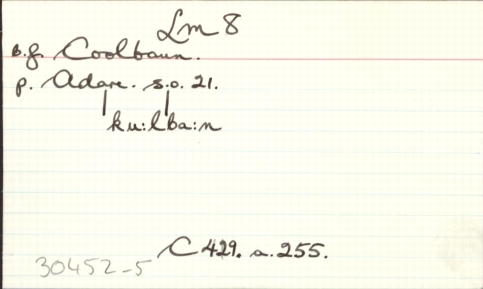 Lm 8
B.f. Coolbaun.
p. Adare. s.o. 21.
ku:lba:n
C 429. a. 255.
30452-5